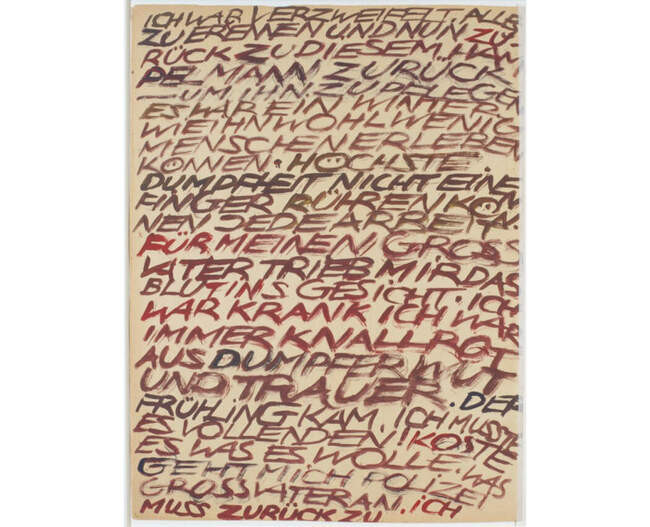 ICH WAR VERZWEIFELT. ALLES
ZU UND NUN ZU-
RÜCK ZU DIESEM HAM
PELMANN ZURÜCK
UM IHN ZU PFLEGEN
ES WAR EIN WINTER
WIE IHN WOHL WENIG
MENSCHEN ERLEBEN
KÖNNEN. HÖCHSTE
DUMPFHEIT NICHT EINE
FINGER RÜHREN KÖN
NEN JEDE ARBEIT
FÜR MEINEN GROSS
VATER TRIEB MIR DAS
BLUT INS GESICHT. ICH
WAR KRANK ICH WAR
IMMER KNALLROT
AUS DUMPFER WUT
UND TRAUER. DER
FRÜHLING KAM. ICH MUSSTE
ES VOLLENDEN! KOSTE
ES WAS ES WOLLE. WAS
GEHT MICH POLIZEI
GROSSVATER AN. ICH
MUSS ZURÜCK ZU